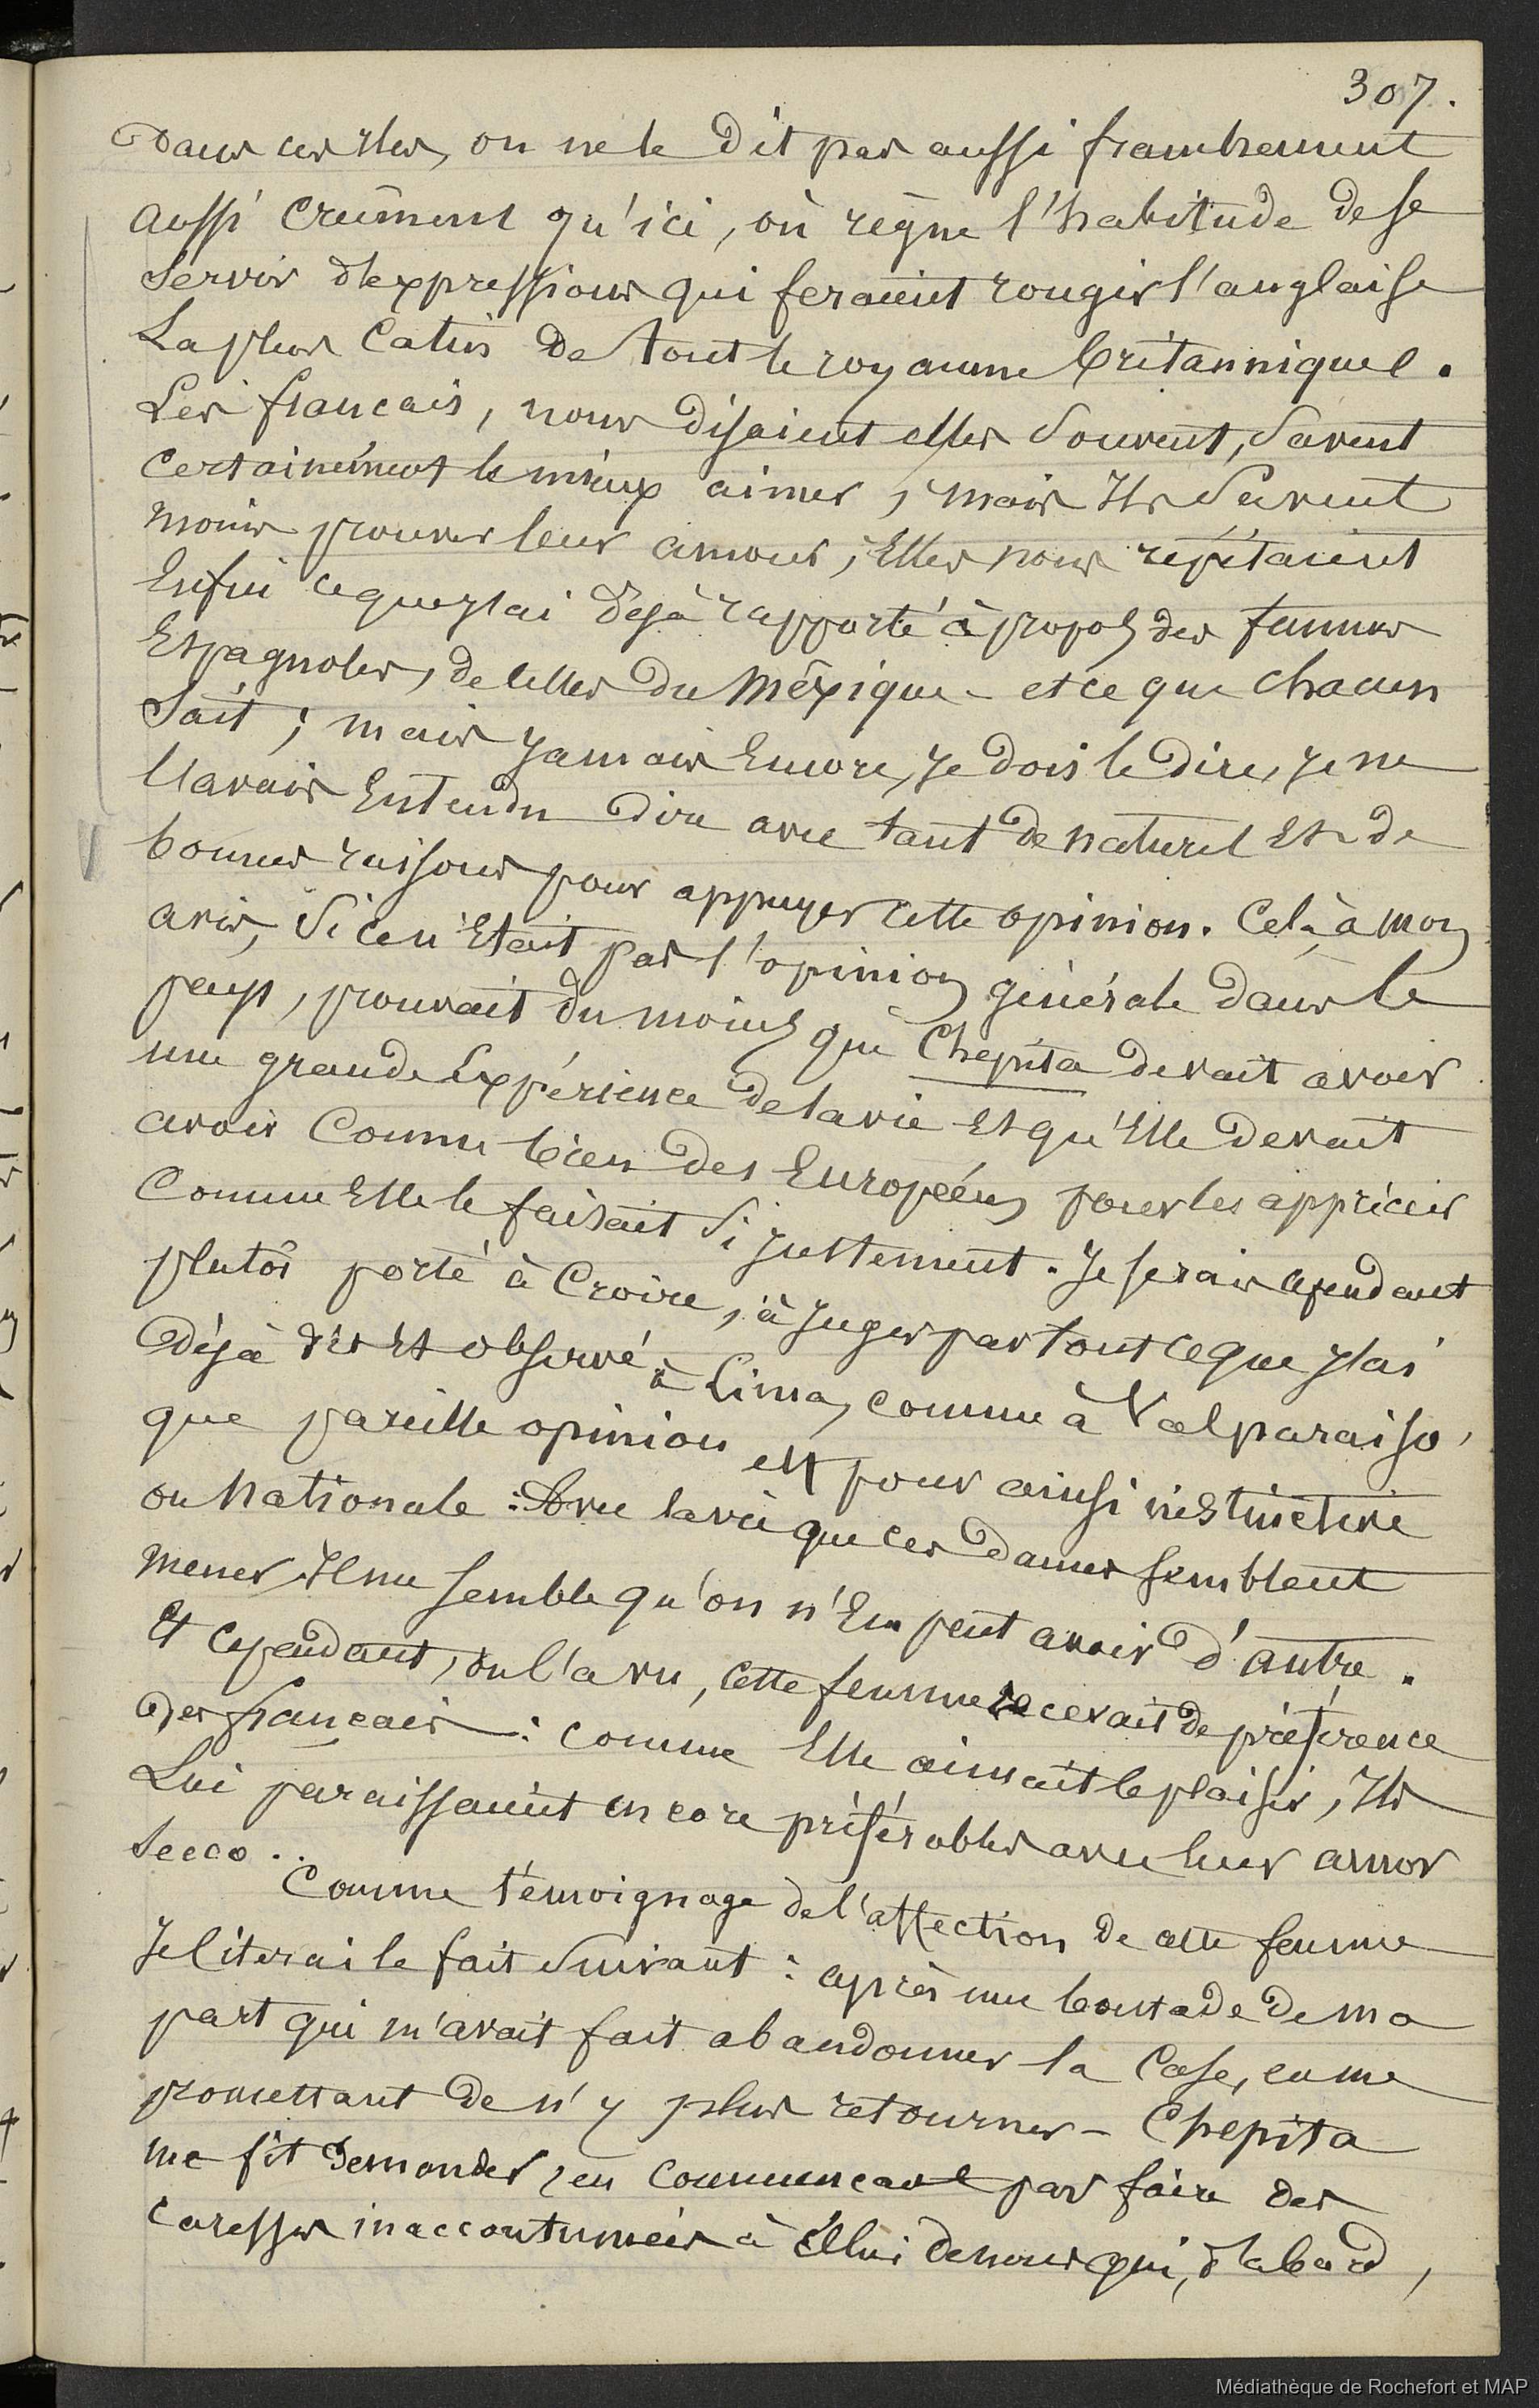 307.
Dans ces Iles, on ne le dit pas aussi franchement
aussi crûment qu'ici, où règne l'habitude de se
servir d'expressions qui feraient rougir l'anglaise
La plus Catin de tout le royaume britannique.
Les francais, nous disaient elles souvent, savent
certainement le mieux aimer, mais Ils savent
moins prouver leur amour, Elles nous répétaient
Enfin ce que j'ai déjà rapporté à propos des femmes
Espagnoles, de celles du Méxique - et ce que chacun
sait ; mais jamais Encore, je dois le dire, je ne
l'avais Entendu dire avec tant de naturel Et de
bonnes raisons pour appuyer cette opinion. Celà, à mon
avis, Si ce n'Etait pas l'opinion générale dans le
pays, prouvait du moins que Chepita devait avoir
une grande Expérience de la vie Et qu'Elle devait
avoir Connu bien des Européens pour les apprécier
Comme Elle le faisait Si justement. Je serais cependant
plutôt porté à Croire, à Juger par tout ce que j'ai
Déjà vu Et observé à Lima, comme à Valparaiso,
que pareille opinion est pour ainsi instinctive
ou Nationale : Avec la vie que ces dames semblent
mener, Il me semble qu'on n'En peut avoir d'autre.
Et cependant, on l'a vu, cette femme recevait de préférence
des francais : comme Elle aimait le plaisir, Ils
Lui paraissaient encore préférables avec leur amor
secco..
Comme témoignage de l'affection de cette femme
Je citerai le fait suivant : après une boutade de ma
part qui m'avait fait abandonner la Case, en me
promettant de n'y plus retourner - Chepita
me fit demander, en commencant par faire des
caresses inaccoutumées à Celui de nous qui, d'abord,
Médiathèque de Rochefort et MAP